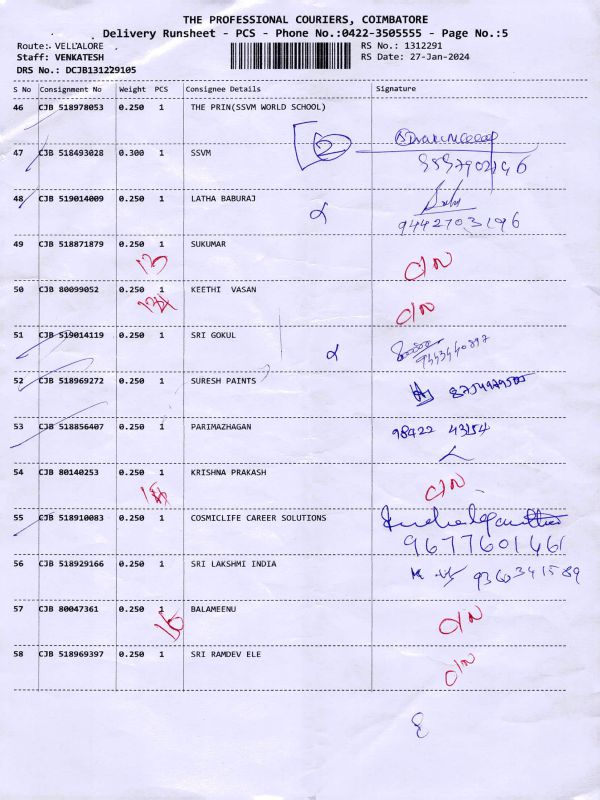 THE PROFESSIONAL COURIERS, COIMBATORE
Delivery Runsheet - PCS - Phone No.:0422-3505555 - Page No.:5
Route: VELLALORE RS No.: 1312291
Staff: VENKATESH RS Date: 27-Jan-2024
DRS No.: DCJB131229105
S No Consignment No Weight PCS Consignee Details Signature
46 CJB 518978053 0.250 1 THE PRIN(SSVM WORLD SCHOOL)
2
47 CJB 518493028 0.300 1 SSVM
48 CJB 519014009 0.250 1 LATHA BABURAJ
9442703196
49 CJB 518871879 0.250 1 SUKUMAR
13 O/N
50 CJB 80099052 0.250 1 KEETHI VASAN
O/N
51 CJB 519014119 0.250 1 SRI GOKUL
9443440897
52 CJB 518969272 0.250 1 SURESH PAINTS
53 CJB 518856407 0.250 1 PARIMAZHAGAN 98422 43154
54 CJB 80140253 0.250 1 KRISHNA PRAKASH
O/N
55 CJB 518910083 0.250 1 COSMICLIFE CAREER SOLUTIONS
9677601461
56 CJB 518929166 0.250 1 SRI LAKSHMI INDIA 9360341589
57 CJB 80047361 0.250 1 BALAMEENU
16 O/N
58 CJB 518969397 0.250 1 SRI RAMDEV ELE
O/N
8